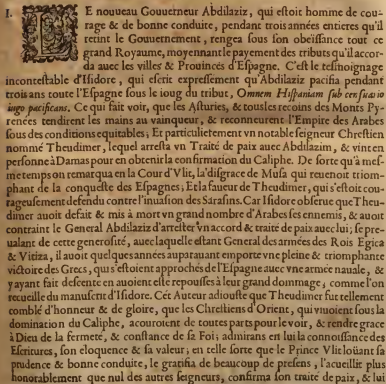 I. LE nouueau Gouuerneur Abdilaziz, qui estoit homme de cou-
rage & de bonne conduite, pendant trois années entieres qu'il
retint le Gouuernement, rengea sous son obeïssance tout ce
grand Royaume, moyennant le payement des tributs qu'il accor-
da auec les villes & Prouinces d'Espagne. C'est le tesmoignage
incontestable d'Isidore, qui escrit expressement qu'Abdilaziz pacifia pendant
trois ans toute l'Espagne sous le ioug du tribut, Omnem Hispaniam sub censuario
iugo pacificans. Ce qui fait voir, que les Asturies, & tous les recoins des Monts Py-
renées tendirent les mains au vainqueur, & reconneurent l'Empire des Arabes
sous des conditions equitables; Et particulierement vn notable seigneur Chrestien
nommé Theudimer, lequel arresta vn Traité de paix auec Abdilazim, & vint en
personne à Damas pour en obtenir la confirmation du Caliphe. De sorte qu'à mes-
me temps on remarqua en la Cour d'Vlit, la disgrace de Musa qui reuenoit triom-
phant de la conqueste des Espagnes; Et la faueur de Theudimer, qui s'estoit cou-
rageusement defendu contre l'inuasion des Sarasins. Car Isidore obserue que Theu-
dimer auoit defait & mis à mort vn grand nombre d'Arabes ses ennemis, & auoit
contraint le General Abdilaziz d'arrester vn accord & traité de paix auec lui; se pre-
ualant de cette generosité, auec laquelle estant General des armées des Rois Egica
& Vitiza, il auoit quelques années auparauant emporté vne pleine & triomphante
victoire des Grecs, qui s'estoient approchés de l'Espagne auec vne armée nauale, &
y ayant fait descente en auoient esté repoussés à leur grand dommage; comme l'on
recueille du manuscrit d'Isidore. Cét Auteur adiouste que Theudimer fut tellement
comblé d'honneur & de gloire, que les Chrestiens d'Orient, qui viuoient sous la
domination du Caliphe, acouroient de toutes parts pour le voir, & rendre grace
à Dieu de la fermeté, & constance de sa Foi; admirans en lui la connoissance des
Escritures, son eloquence & sa valeur; en telle sorte que le Prince Vlit loüant sa
prudence & bonne conduite, le gratifia de beaucoup de presens, l'accueillit plus
honorablement que nul des autres seigneurs, confirma son traité de paix, & le